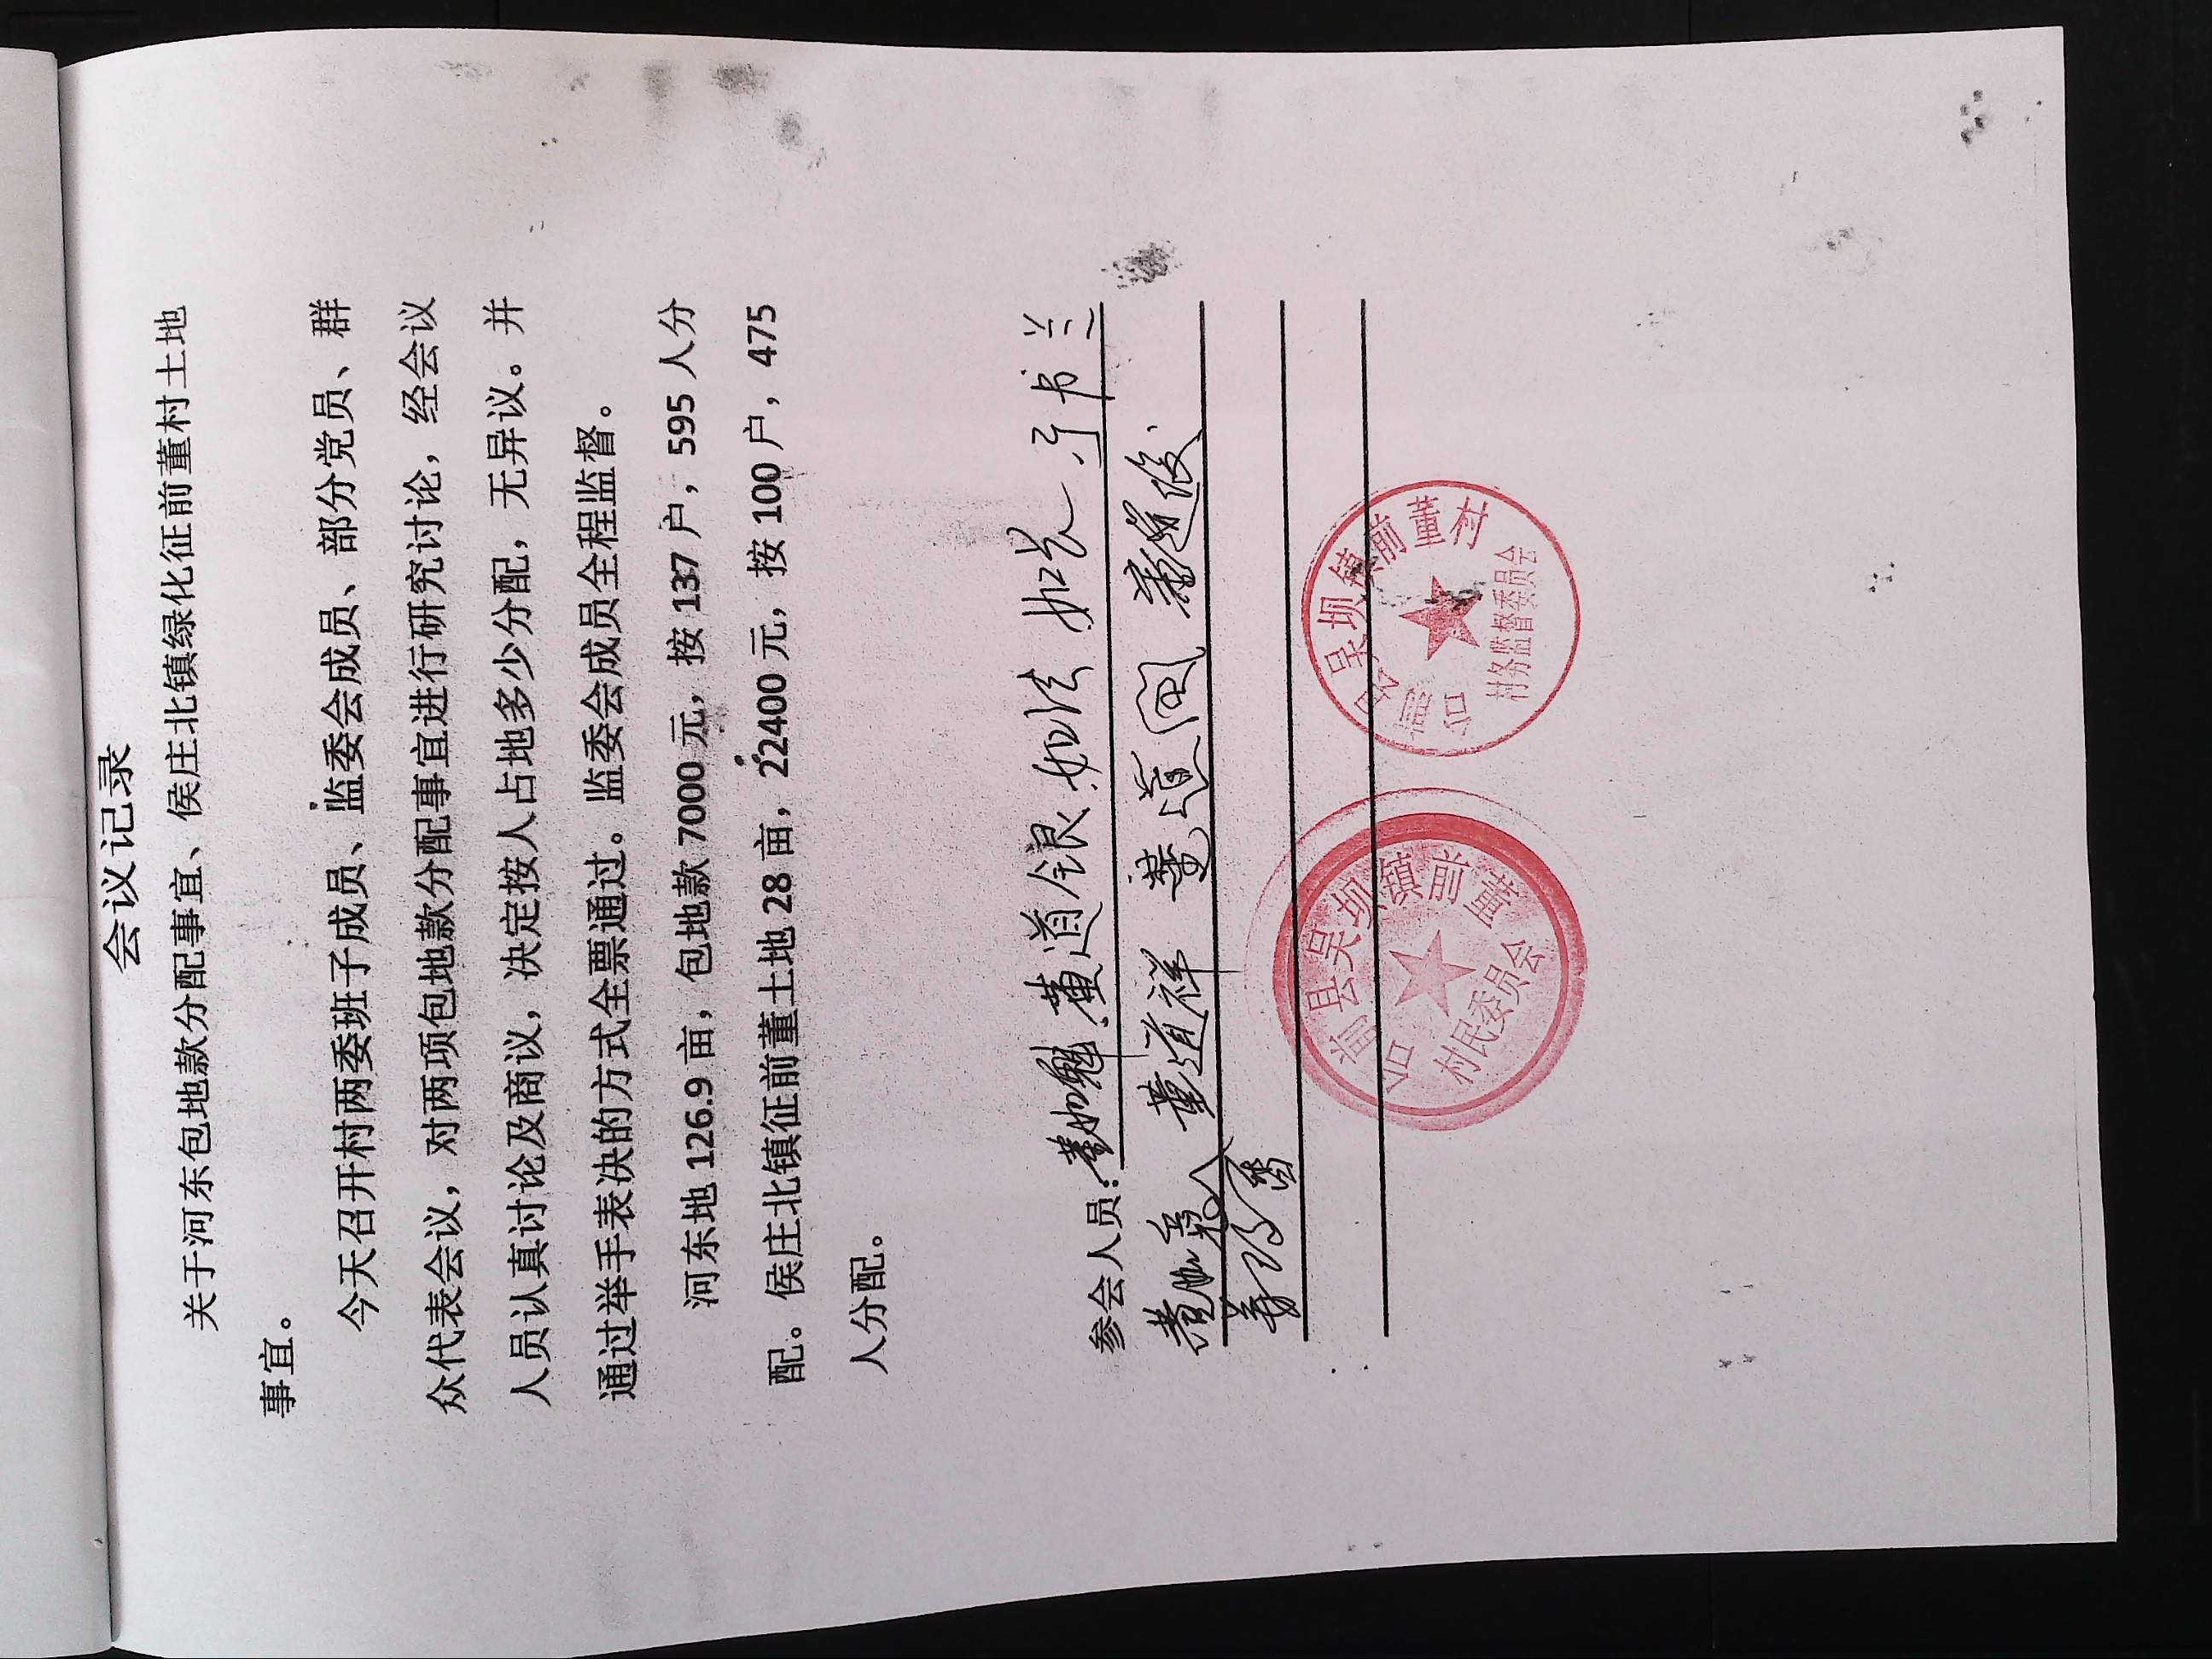 会议记录
关于河东包地款分配事宜、侯庄北镇绿化征前董村土地
事宜。
今天召开村两委班子成员、监委会成员、部分党员、群
众代表会议，对两项包地款分配事宜进行研究讨论，经会议
人员认真讨论及商议，决定按人占地多少分配，无异议。并
通过举手表决的方式全票通过。监委会成员全程监督。
河东地 126.9 亩，包地款 7000 元，按 137 户，595 人分
配。侯庄北镇征前董土地 28 亩，22400 元，按 100 户，475
人分配。
参会人员：董如魁 黄道银 如法
董道祥
县吴坝镇前董
村民委员会
吴坝镇前董村
村务监督委员会